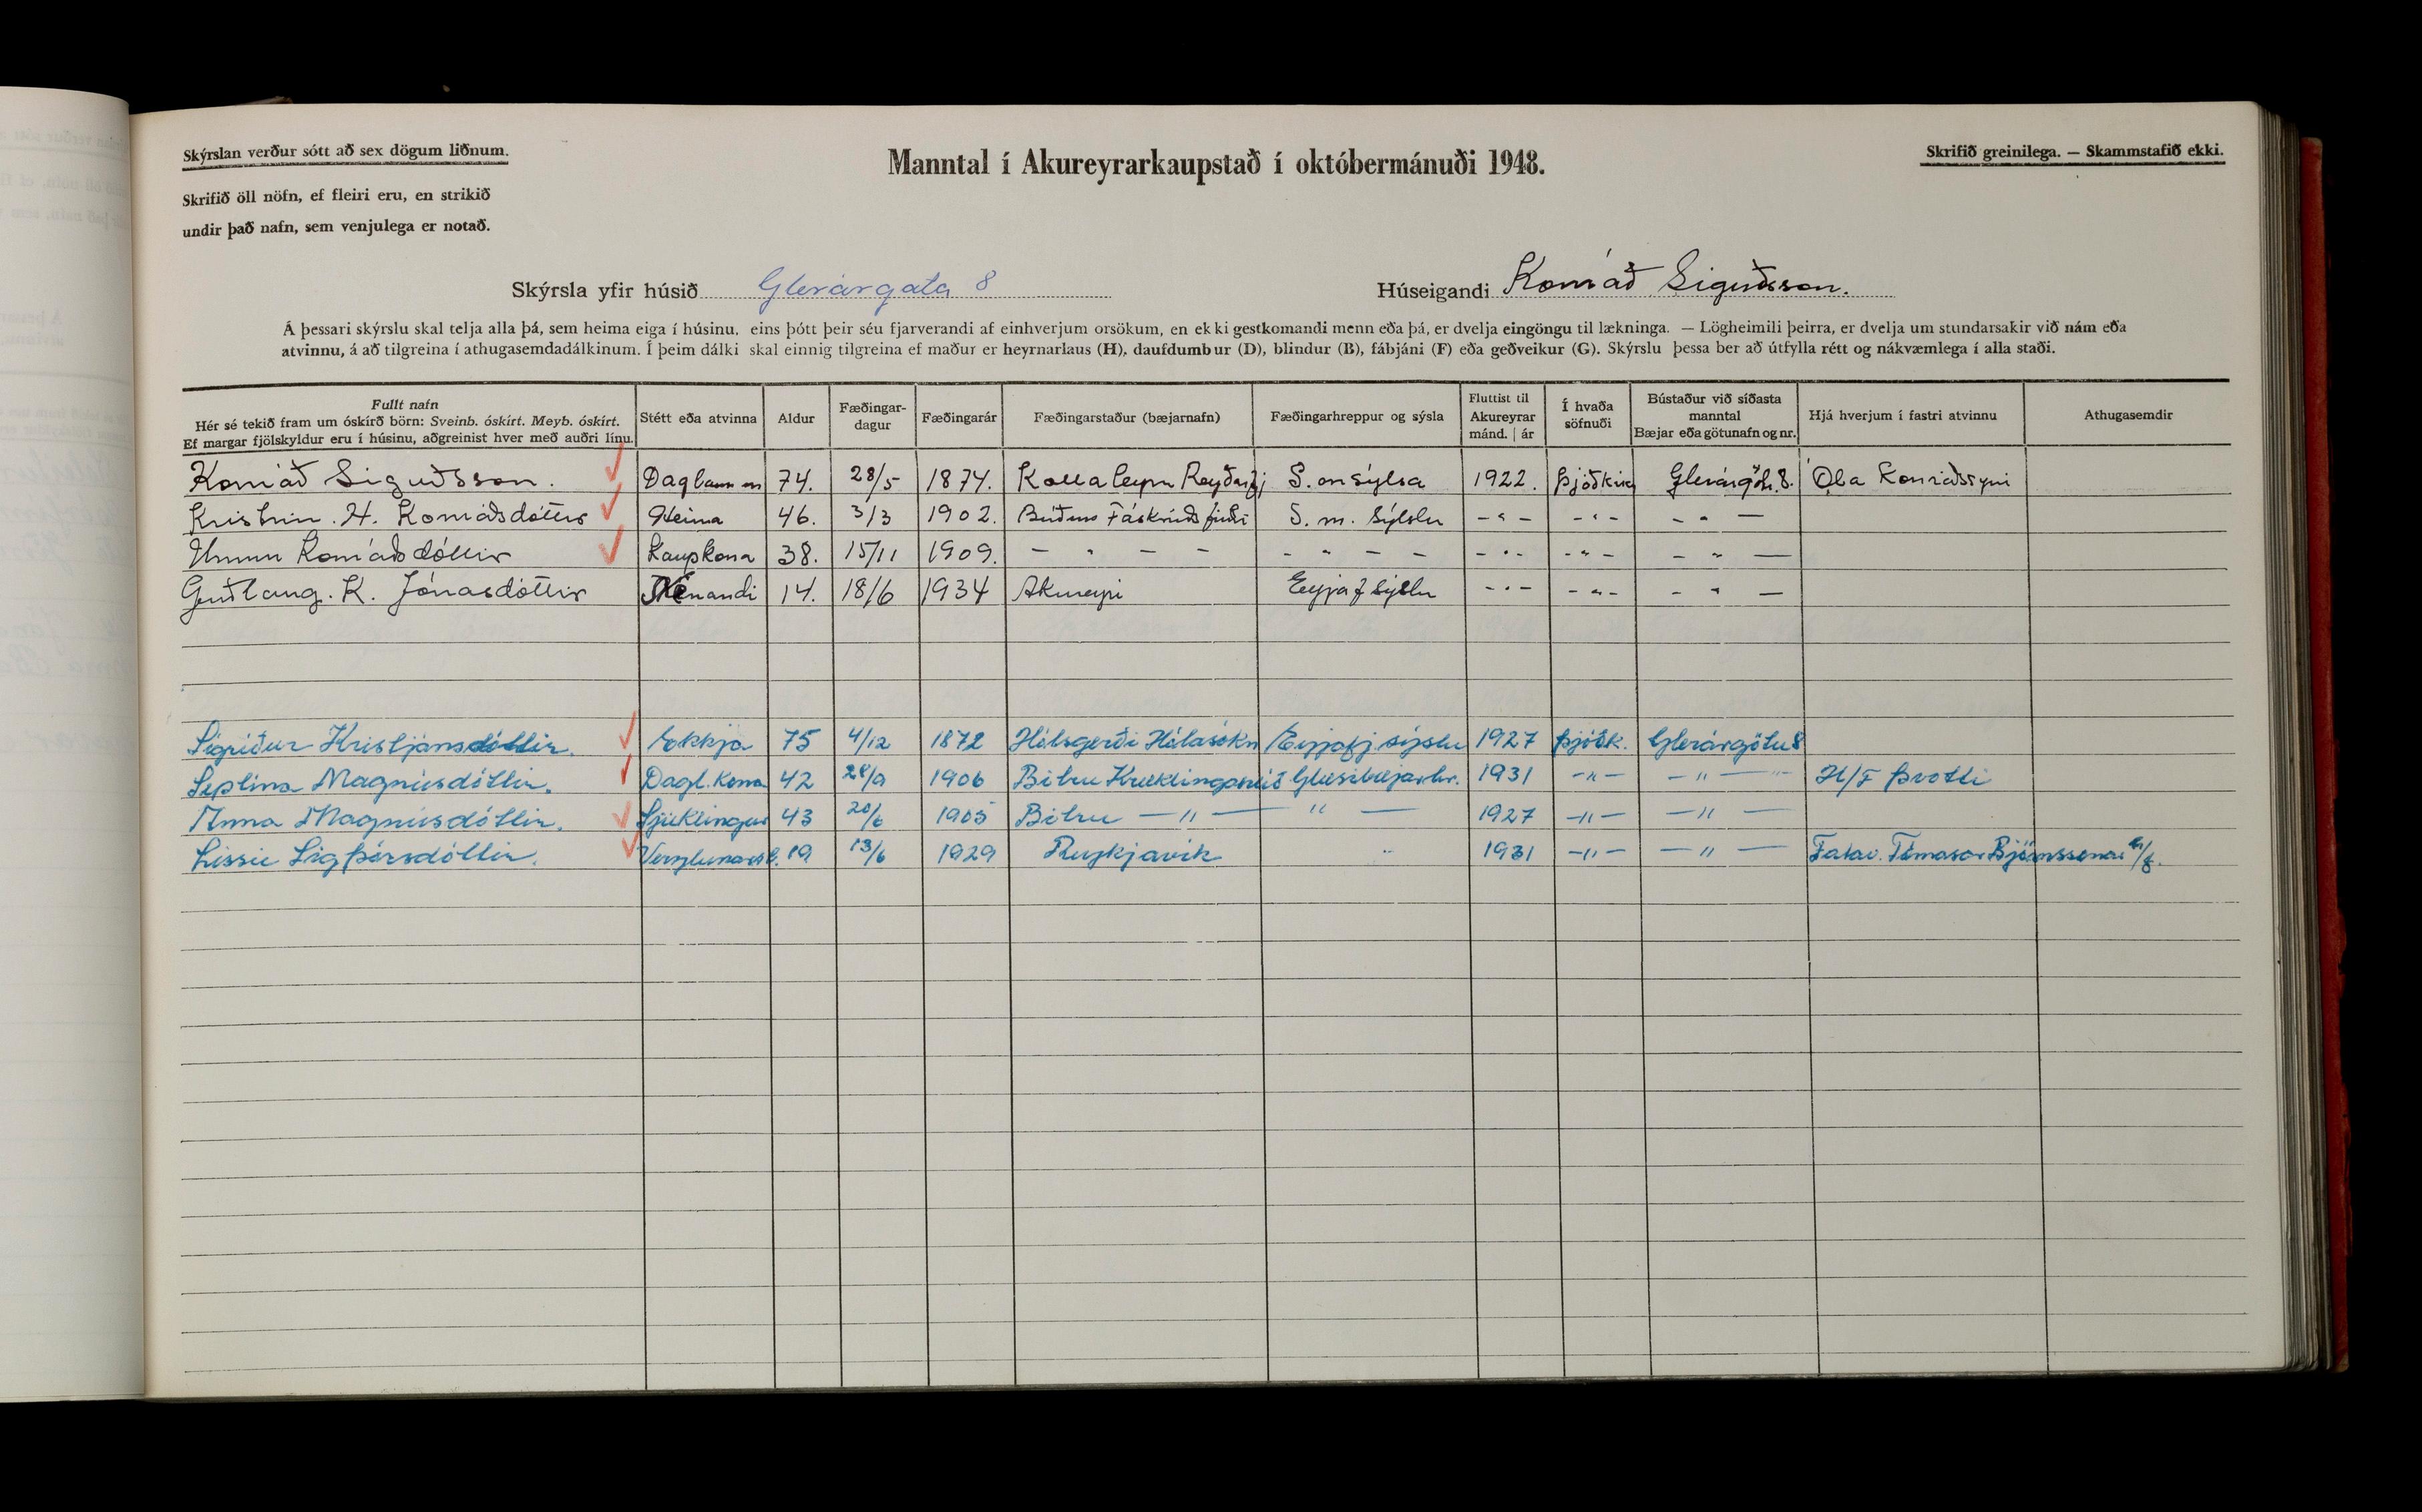 Skýrslan verður sótt að sex dögum liðnum.
Manntal í Akureyrarkaupstað í októbermánuði 1948.
Skrifið greinilega. — Skammstafið ekki.
Skrifið öll nöfn, ef fleiri eru, en strikið
undir það nafn, sem venjulega er notað.
Skýrsla yfir húsið Glerárgata 8 Húseigandi Konráð Sigurðsson.
Á þessari skýrslu skal telja alla þá, sem heima eiga í húsinu, eins þótt þeir séu fjarverandi af einhverjum orsökum, en ekki gestkomandi menn eða þá, er dvelja eingöngu til lækninga. — Lögheimili þeirra, er dvelja um stundarsakir við nám eða
atvinnu, á að tilgreina í athugasemdadálkinum. Í þeim dálki skal einnig tilgreina ef maður er heyrnarlaus (H), daufdumbur (D), blindur (B), fábjáni (F) eða geðveikur (G). Skýrslu þessa ber að útfylla rétt og nákvæmlega í alla staði.
Fullt nafn
Hér sé tekið fram um óskírð börn: Sveinb. óskírt. Meyb. óskírt.
Ef margar fjölskyldur eru í húsinu, aðgreinist hver með auðri línu.
Stétt eða atvinna
Aldur
Fæðingar-
dagur
Fæðingarár
Fæðingarstaður (bæjarnafn)
Fæðingarhreppur og sýsla
Fluttist til
Akureyrar
mánd. | ár
Í hvaða
söfnuði
Bústaður við síðasta
manntal
Bæjar eða götunafn og nr.
Hjá hverjum í fastri atvinnu
Athugasemdir
Konráð Sigurðsson. 74. 28/5 1874. S. m sýlsa 1922. Glerárgöt. 8. Óla Konráðssyni
Kristrin. H. Konráðsdóttir Heima 46. 3/3 1902. Búðum Fáskrúðsfirði S. m. Sýslu -"- -"- - " —
Unnur Konráðsdóttir Kaupkona 38. 15/11 1909. - " - - - " - - -"- -"- - " —
Guðlaug. K. Jónasdóttir Nemandi 14. 18/6 1934 Akureyri Eyjafj sýslu -"- -"- - " —
Sigríður Kristjánsdóttir. Ekkja 75 4/12 1872 Hólsgerði Hólasókn Eyjafj. sýslu 1927 Þjóðk. Glerárgötu 8
Septína Magnúsdóttir. Dagl. Kona 42 28/9 1906 Bitru Kræklingahlíð Glæsibæjarhr. 1931 -"- —"— H/F Þvotti
Anna Magnúsdóttir. Sjúklingur 43 20/6 1905 Bitru —"— " — 1927 -"- —"—
Lissie Sigþórsdóttir. 19 13/6 1929 Reykjavík " 1931 -"- —"— Tómasar Björnssonar h/f.